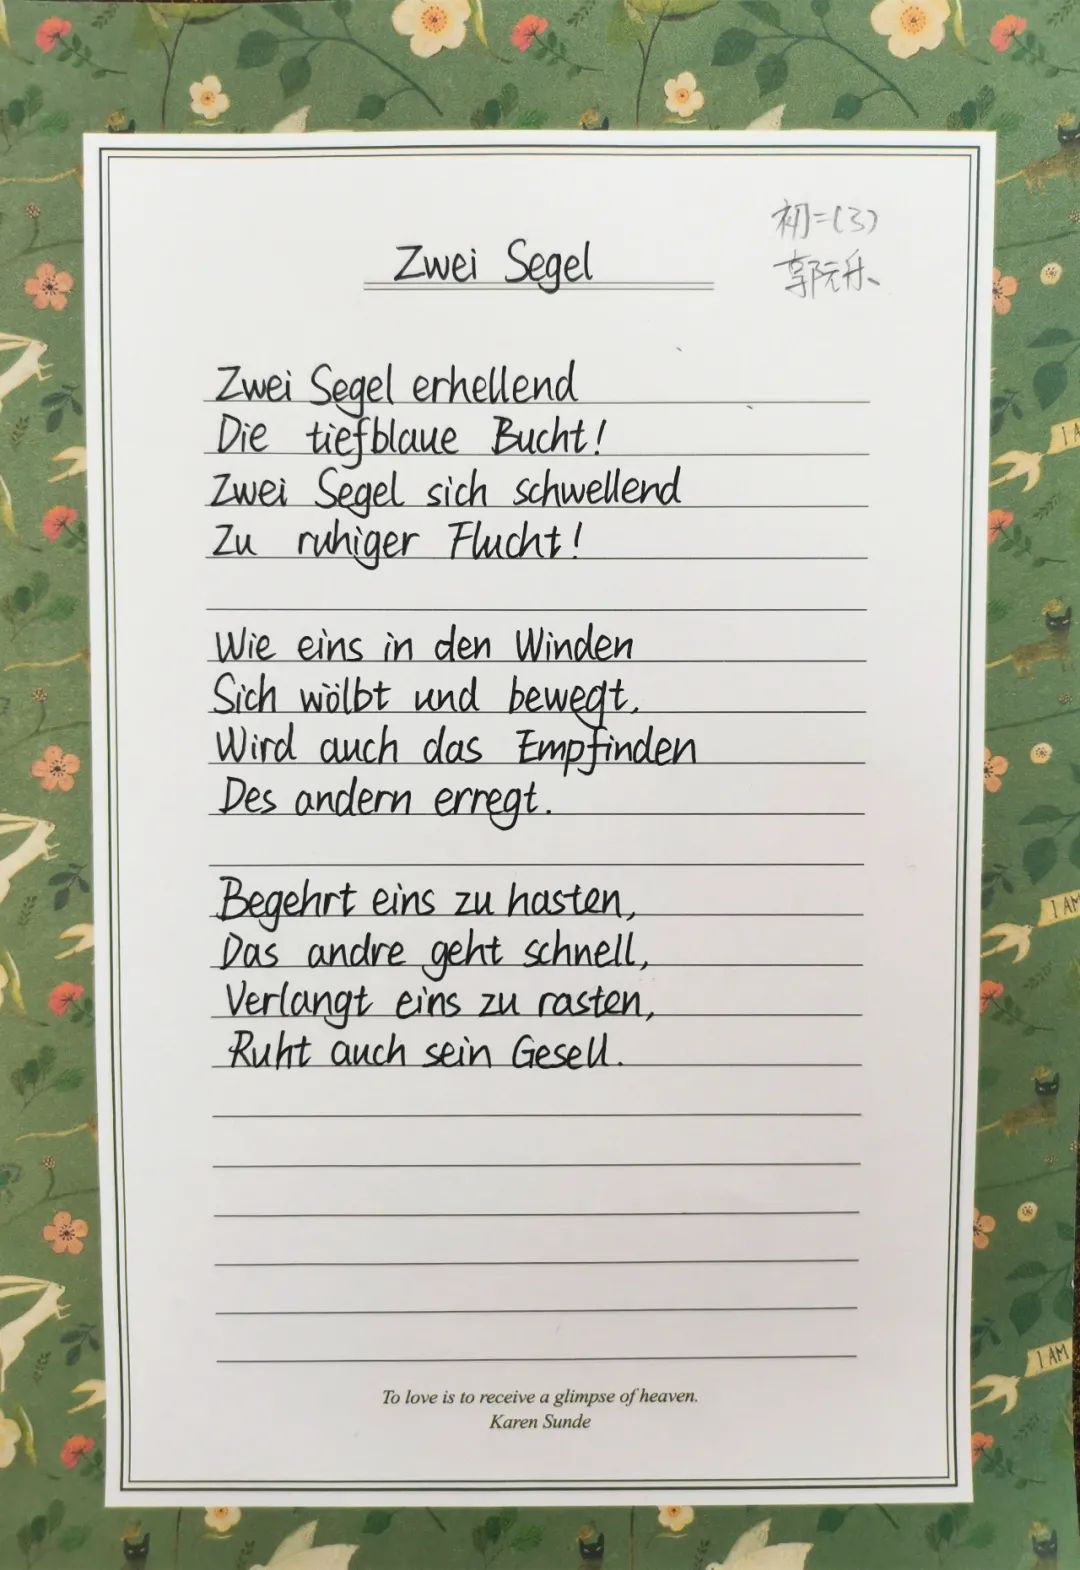 初二(3)
郭元乐
Zwei Segel
Zwei Segel erhellend
Die tiefblaue Bucht!
Zwei Segel sich schwellend
Zu ruhiger Flucht!
Wie eins in den Winden
Sich wölbt und bewegt,
Wird auch das Empfinden
Des andern erregt.
Begehrt eins zu hasten,
Das andre geht schnell,
Verlangt eins zu rasten,
Ruht auch sein Gesell.
To love is to receive a glimpse of heaven.
Karen Sunde
I A
I AM
I AM